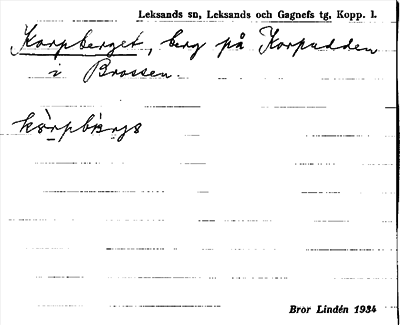 Leksands sn, Leksands och Gagnefs tg, Kopp. l.
Korpberget, berg på Korpudden
i Brossen.
Bror Lindén 1934